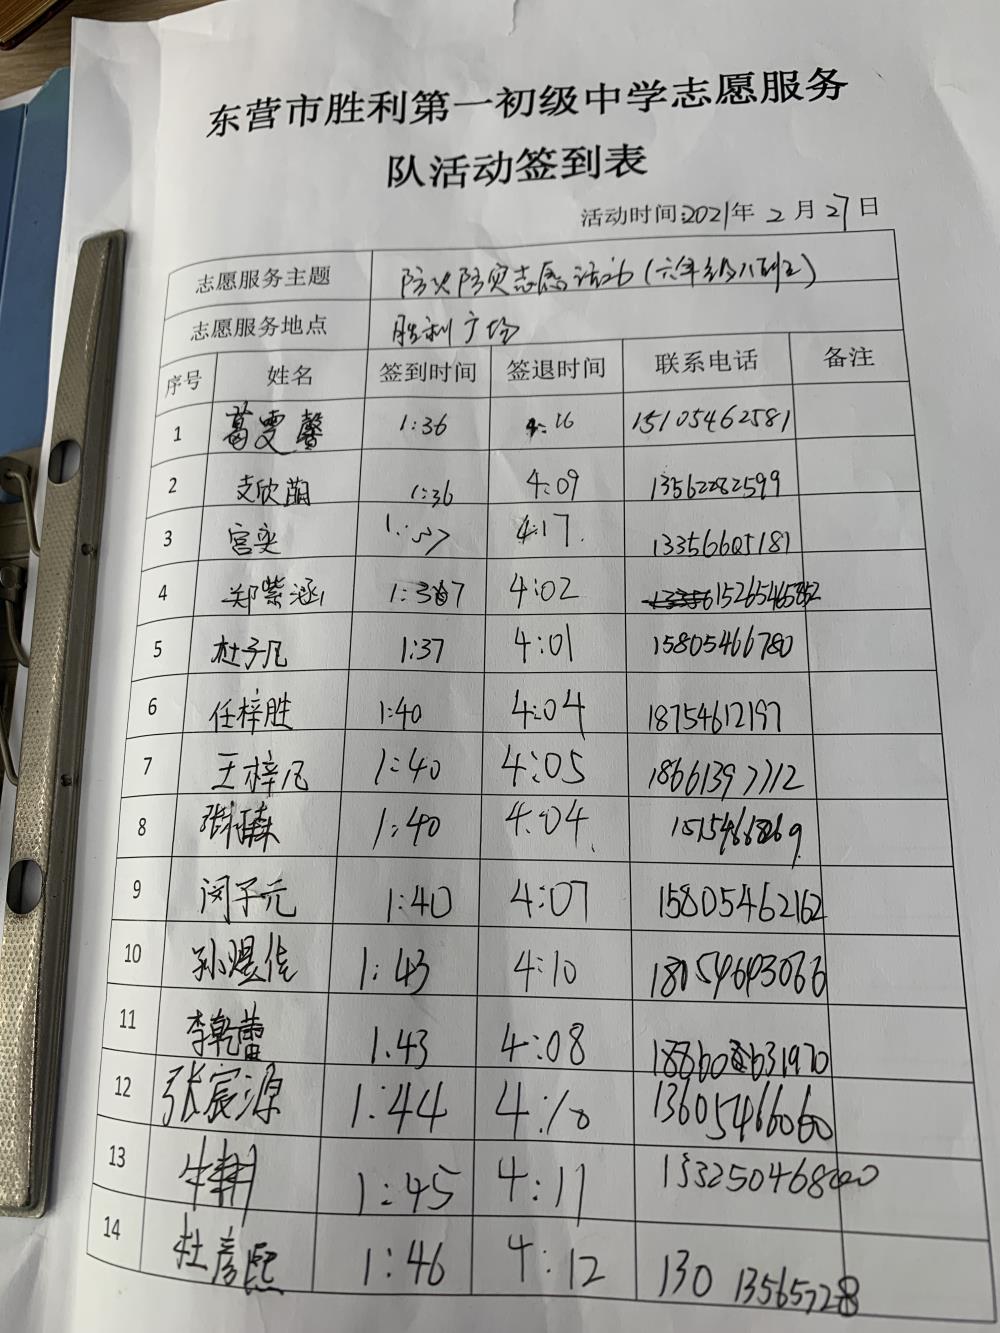 东营市胜利第一初级中学志愿服务
队活动签到表
活动时间:2021年 2 月 27 日
志愿服务主题 防火防灾志愿活动(六年级八班)
志愿服务地点 胜利广场
序号 姓名 签到时间 签退时间 联系电话 备注
1 葛雯馨 1:36 4:16 15105462581
2 支欣蓢 1:36 4:09 13562282599
3 宫奕 1:37 4:17 13356605181
4 郑紫涵 1:37 4:02 15265465852
5 杜子凡 1:37 4:01 15805466780
6 任梓胜 1:40 4:04 18754612197
7 王梓凡 1:40 4:05 18661397712
8 1:40 4:04
9 闵子元 1:40 4:07 15805462162
10 孙煜佳 1:43 4:10 18054643066
11 李乾蕾 1.43 4:08
12 张宸源 1:44 4:10 13605466060
13 牛翀 1:45 4:11
14 杜彦熙 1:46 4:12 130 13565728